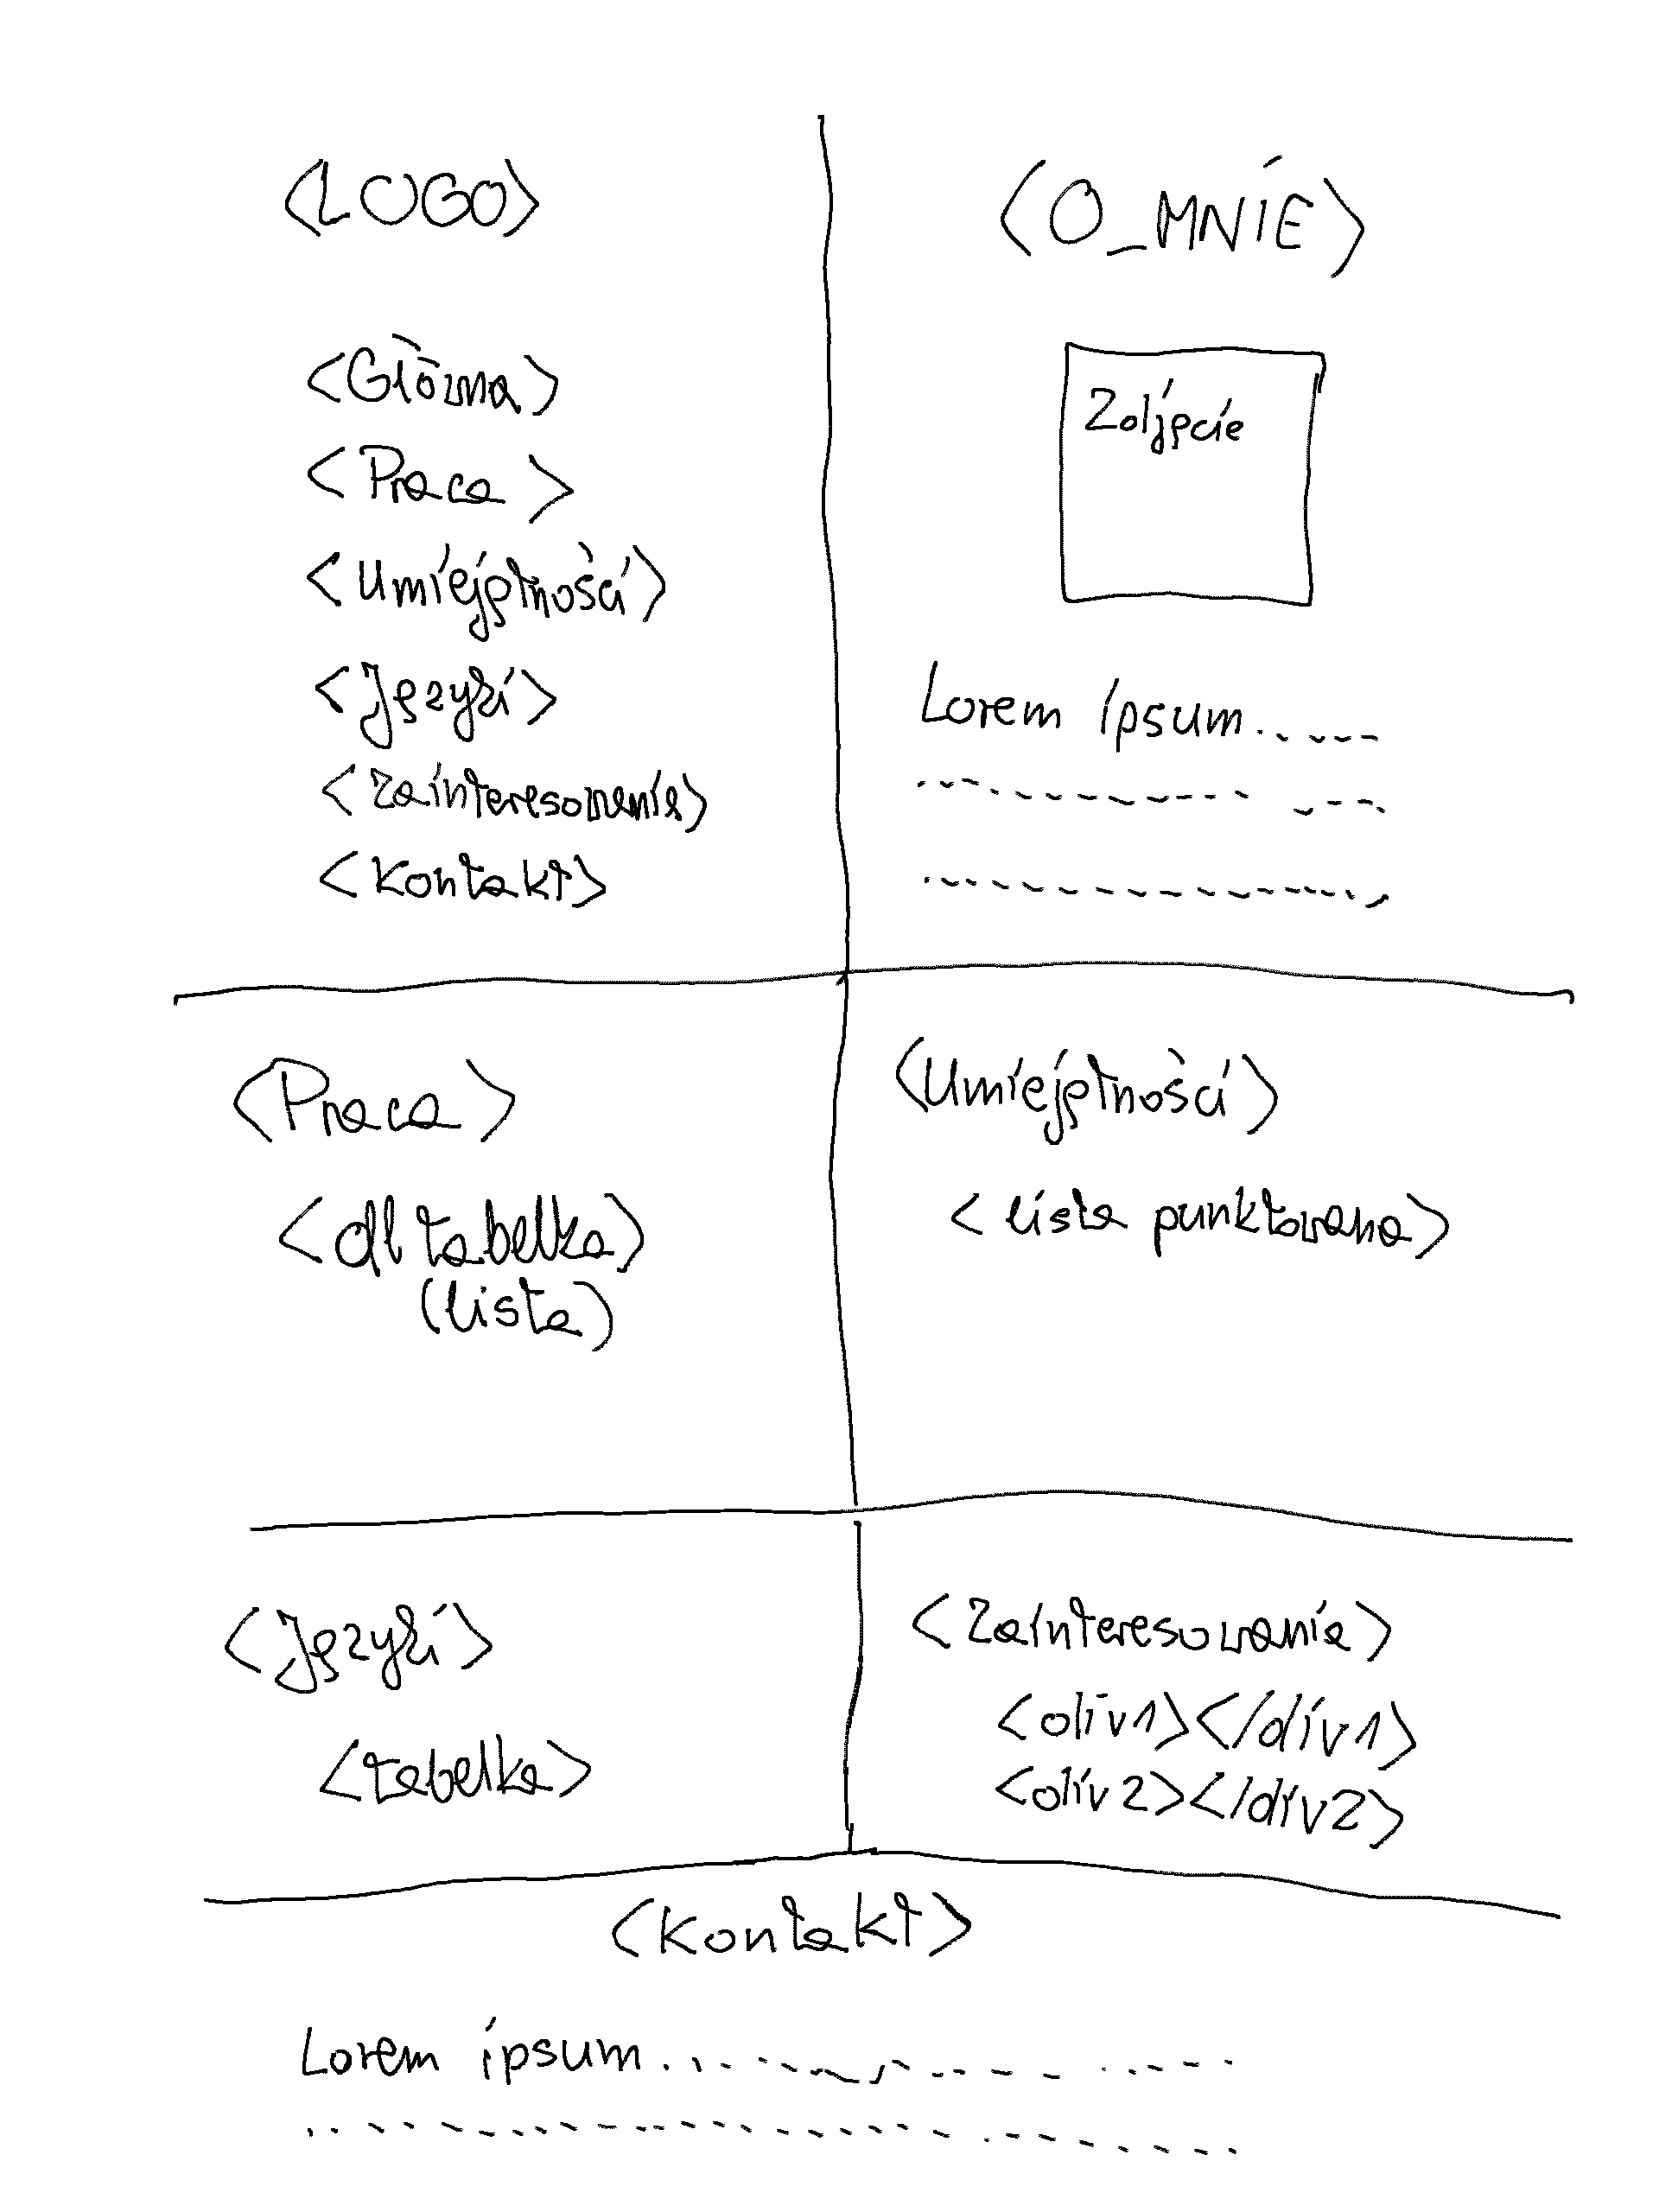 <LOGO>
<Główna>
<Praca>
<Umiejętności>
<Języki>
<Zainteresowania>
<Kontakt>
<O_MNIE>
Zdjęcie
Lorem ipsum.....
<Praca>
<dl tabelka>
(lista)
<Umiejętności>
<lista punktowana>
<Języki>
<tabelka>
<Zainteresowania>
<div1></div1>
<div2></div2>
<Kontakt>
Lorem ipsum.....